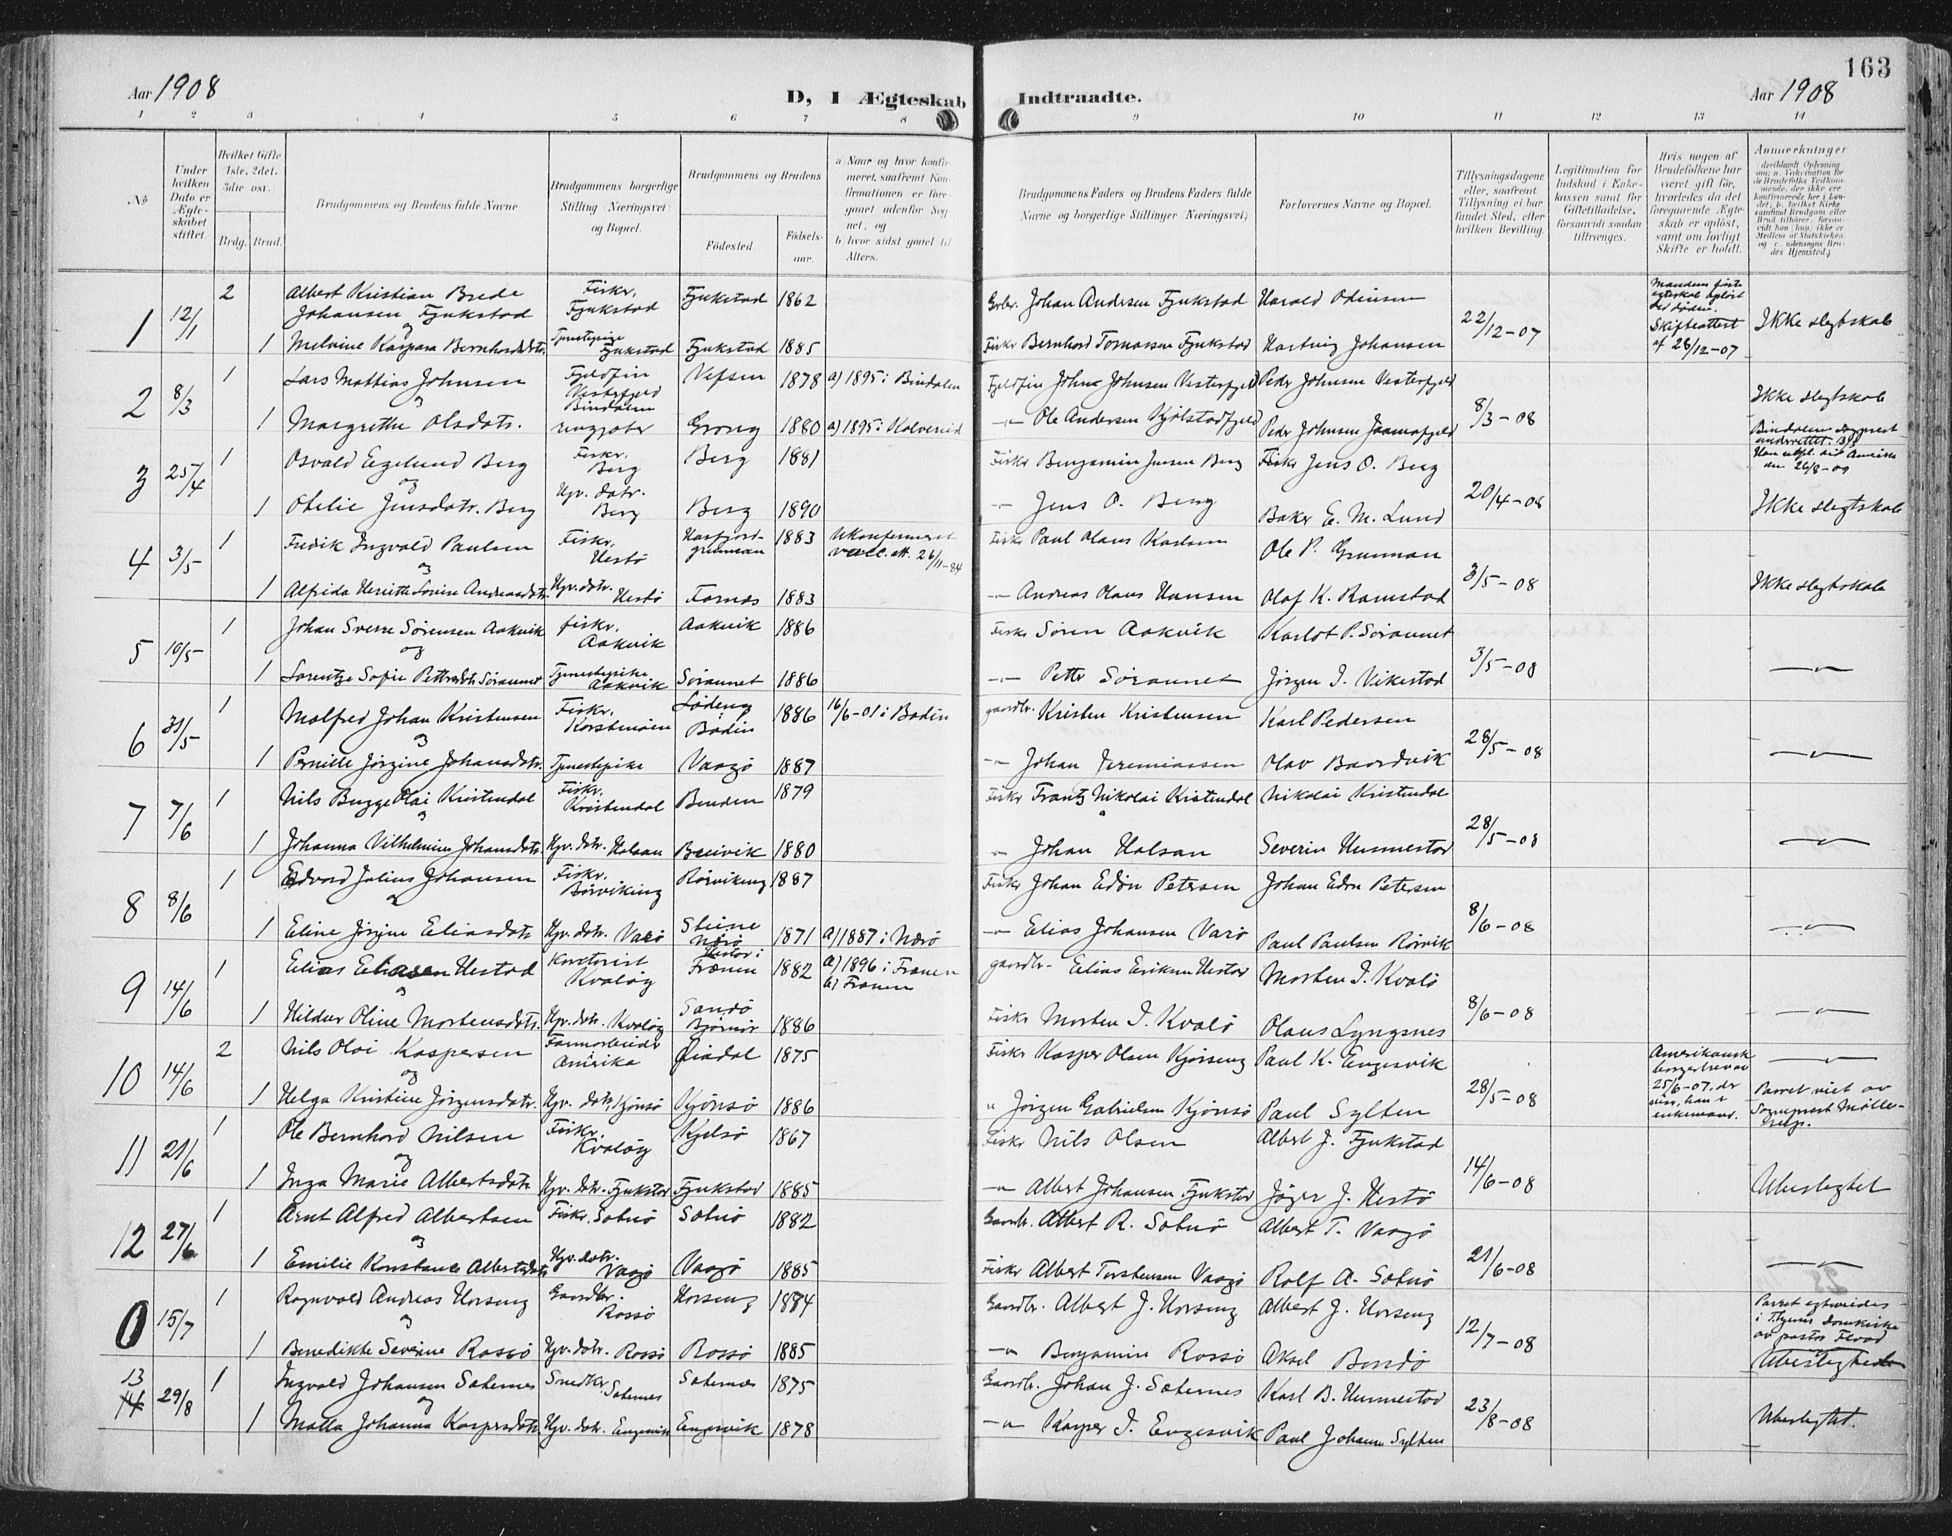 163
Aar 1908
D, I Ægteskab Indtraadte.
Aar 1908
1 2 3 4 5 6 7 8 9 10 11 12 13 14
No
Under hvilken Dato er Ægteskabet stiftet.
Hvilket Gifte 1ste, 2det, 3die osv.
Brdg. Brud.
Brudgommens og Brudens fulde Navne
Brudgommens borgerlige Stilling (Næringsvei) og Bopæl.
Brudgommens og Brudens
Fødested.
Fødselsaar.
a Naar og hvor konfirmeret, saafremt Konfirmationen er foregaaet udenfor Sognet, og
b) hvor sidst gaaet til Alters.
Brudgommens Faders og Brudens Faders fulde Navne og borgerlige Stillinger (Næringsvei)
Forlovernes Navne og Bopæl.
Tillysningsdagene eller, saafremt Tillysning ei har fundet Sted, efter hvilken Bevilling.
Legitimation for Indskud i Enkekassen samt for Giftetilladelse, forsaavidt saadan tiltrænges.
Hvis nogen af Brudefolkene har været gift før, hvorledes da det foregaaende Ægteskab er opløst, samt om lovligt Skifte er holdt.
Anmerkninger
1 12/1 2 Albert Kristian Brede Johansen Fjukstad Fisker, Fjukstad Fjukstad 1862 Johan Andersen Fjukstad Harald Odinsen 22/12-07 Skifteattest af 28/12-07 Ikke slegtskab
og
1 Melvine Kaspara Bernhardsdtr. Fjukstad Fjukstad 1885 Fisker Bernhard Tomassen Fjukstad Hartvig Johansen
2 8/3 1 Lars Mattias Johnsen Fjeldfin Vesterfjeld Bindalen Vefsen 1878 a) 1895 i Bindalen Fjeldfin Johna Johnsen Vesterfjeld Peder Johnsen Vesterfjeld 8/3-08 Ikke slegtskab
og
1 Margrethe Olsdatr. Grong 1880 a) 1895 i Kolvereid -"- Ole Andersen Kjølstadfjeld Peder Johnsen Jaamafjeld Bindalen sogneprest underrettet.
3 25/4 1 Osvald Egelund Berg Fisker, Berg Berg 1881 Fisker Benjamin Jensen Berg Fisker Jens O. Berg 20/4-08 Ikke slegtskab
og
1 Otelie Jensdatr. Berg Hjv. datr. Berg Berg 1890 -"- Jens O. Berg Baker E. M. Lund
4 3/5 1 Fredik Ingvald Paulsen Fisker, Hestø 1883 Ukonfirmeret vacc. att. 26/11-84 Fisker Paul Olaus Karlsen Ole P. Grunnan 3/5-08 Ikke slegtskab
og
1 Alfrida Henritte Lovise Andreasdtr. Hjv. datr. Hestø Fornæs 1883 -"- Andreas Olaus Hansen Olaf K. Ramstad
5 10/5 1 Johan Sverre Sørensen Aakvik Fisker, Aakvik Aakvik 1886 Fisker Søren Aakvik Karlot P. Søraunet 3/5-08 -"-
og
1 Lorentze Sofie Pettersdtr Søraunet Tjenestepike Aakvik Søraunet 1886 -"- Petter Søraunet Jørgen I. Vikestad
6 31/5 1 Malfred Johan Kristensen Fisker, Korstenøien Løding Bodin 1886 16/6-01 i Bodin gaardbr. Kristen Kristensen Karl Pedersen 28/5-08 -"-
og
1 Pernille Jørgine Johansdtr. Tjenestepike Vaagø 1887 -"- Johan Jeremiassen Olav Baardvik
7 7/6 1 Nils Bugge Olai Kristendal Fisker, Kristendal Benden 1879 Fisker Frantz Nikolai Kristendal Nikolai Kristendal 28/5-08 -"-
og
1 Johanna Vilhelmine Johansdtr. Hjv. datr. Halsan Breivik 1880 -"- Johan Halsan Severin Hunnestad
8 8/6 1 Edvard Julius Johansen Fisker, Rørviking Rørviking 1887 Fisker Johan Edøn Petersen Johan Edøn Petersen 8/6-08 -"-
og
1 Eline Jørgine Eliasdtr Hjv. datr. Varø Steine Nærø 1871 a) 1887 i Nærø -"- Elias Johansen Varø Paul Paulsen Rørvik
9 14/6 1 Elias Eliasen Hestad Kontorist Kvaløy Hestad i Frænen 1882 a) 1896 i Frænen b) Frænen gaardbr. Elias Eriksen Hestad Morten I. Kvalø 8/6-08 -"-
og
1 Hildur Oline Mortensdtr. Hjv. datr. Kvaløy Sandø Bjørnør 1886 Fisker Morten I. Kvalø Olaus Lyngsnes
10 14/6 2 Nils Olai Kaspersen Farmarbeider Amerika Øiadal 1875 Fisker Kasper Olsen Kjørseng Paul K. Engesvik 28/5-08 Amerikansk borgerbrev av 25/6-07, der viser, han er enkemand. -"-
og
1 Helga Kristine Jørgensdatr. Hjv. datr, Kjønsø Kjønsø 1886 " Jørgen Gabrielsen Kjønsø Paul Sylten Parret viet av Sogneprest
11 21/6 1 Ole Bernhard Nilsen Fisker, Kvaløy Kjelsø 1867 Fisker Nils Olsen Albert J. Fjukstad 14/6-08 Ubeslegtet
og
1 Inga Marie Albertsdtr Hjv. datr. Fjukstad Fjukstad 1885 -"- Albert Johansen Fjukstad J. Hestø
12 27/6 1 Arnt Alfred Albertsen Fisker, Solnø Solnø 1882 Gaardbr. Albert R. Solnø Albert T. Vaagø 21/6-08 -"-
og
1 Emilie Konstanse Albertsdtr Hjv. datr. Vaagø Vaagø 1885 Fisker Albert Torstensen Vaagø Rolf A. Solnø
0 15/7 1 Ragnvald Andreas Horseng Gaardbr. Rossø Horseng 1884 Gaardbr. Albert J. Horseng Albert J. Horseng 12/7-08 Parret egtevies i Tr.hjems Domkirke av pastor
og
1 Benedikte Severine Rossø Hjv. datr. Rossø Rossø 1885 -"- Benjamin Rossø Aksel Bondø Ubeslegtede
13 14 29/8 1 Ingvald Johansen Sæternes Snedker Sæternes Sæternes 1875 Gaardbr. Johan J. Sæternes Karl B. Hunnestad 23/8-08 Ubeslegtet.
og
1 Matta Johanna Kaspersdtr Hjv. datr. Engesvik Engesvik 1878 -"- Kasper I. Engesvik Paul Johansen Sylten